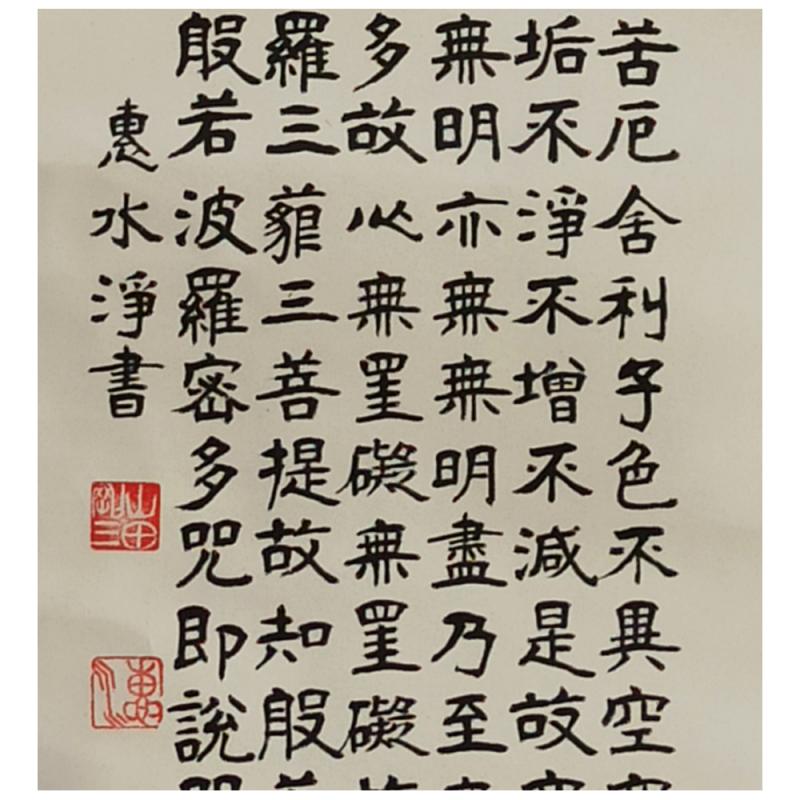 苦厄舍利子色不異空
垢不淨不增不減是故
無明亦無無明盡乃至
多故心無罣礙無罣礙
羅三藐三菩提故知般
般若波羅密多咒即說
惠水淨書